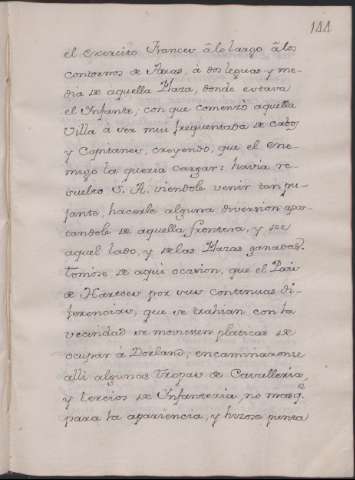 144
el exercito Frances à lo largo à los
contornos de Arras, à dos leguas y me-
dia de aquella Plaza, donde estava
el Infante, con que comenzó aquella
Villa à ser mui frequentada de Cabos
y Capitanes, creyendo, que el ene-
migo la queria cargar: havia re-
suelto S. A. viendole venir tan pu-
jante, hacerle alguna diversion apar-
tandole de aquella frontera, y de
aquel lado, y de las Plazas ganadas.
Tomóse de aqui ocasion, que el Pais
de Hareser por sus continuas di-
ferencias, que se trahian con la
vecindad se moviesen platicas de
ocupar à Dorland, encaminaronse
alli algunas tropas de Cavalleria,
y tercios de Infanteria, no mas q.
para la apariencia, y hizose punta